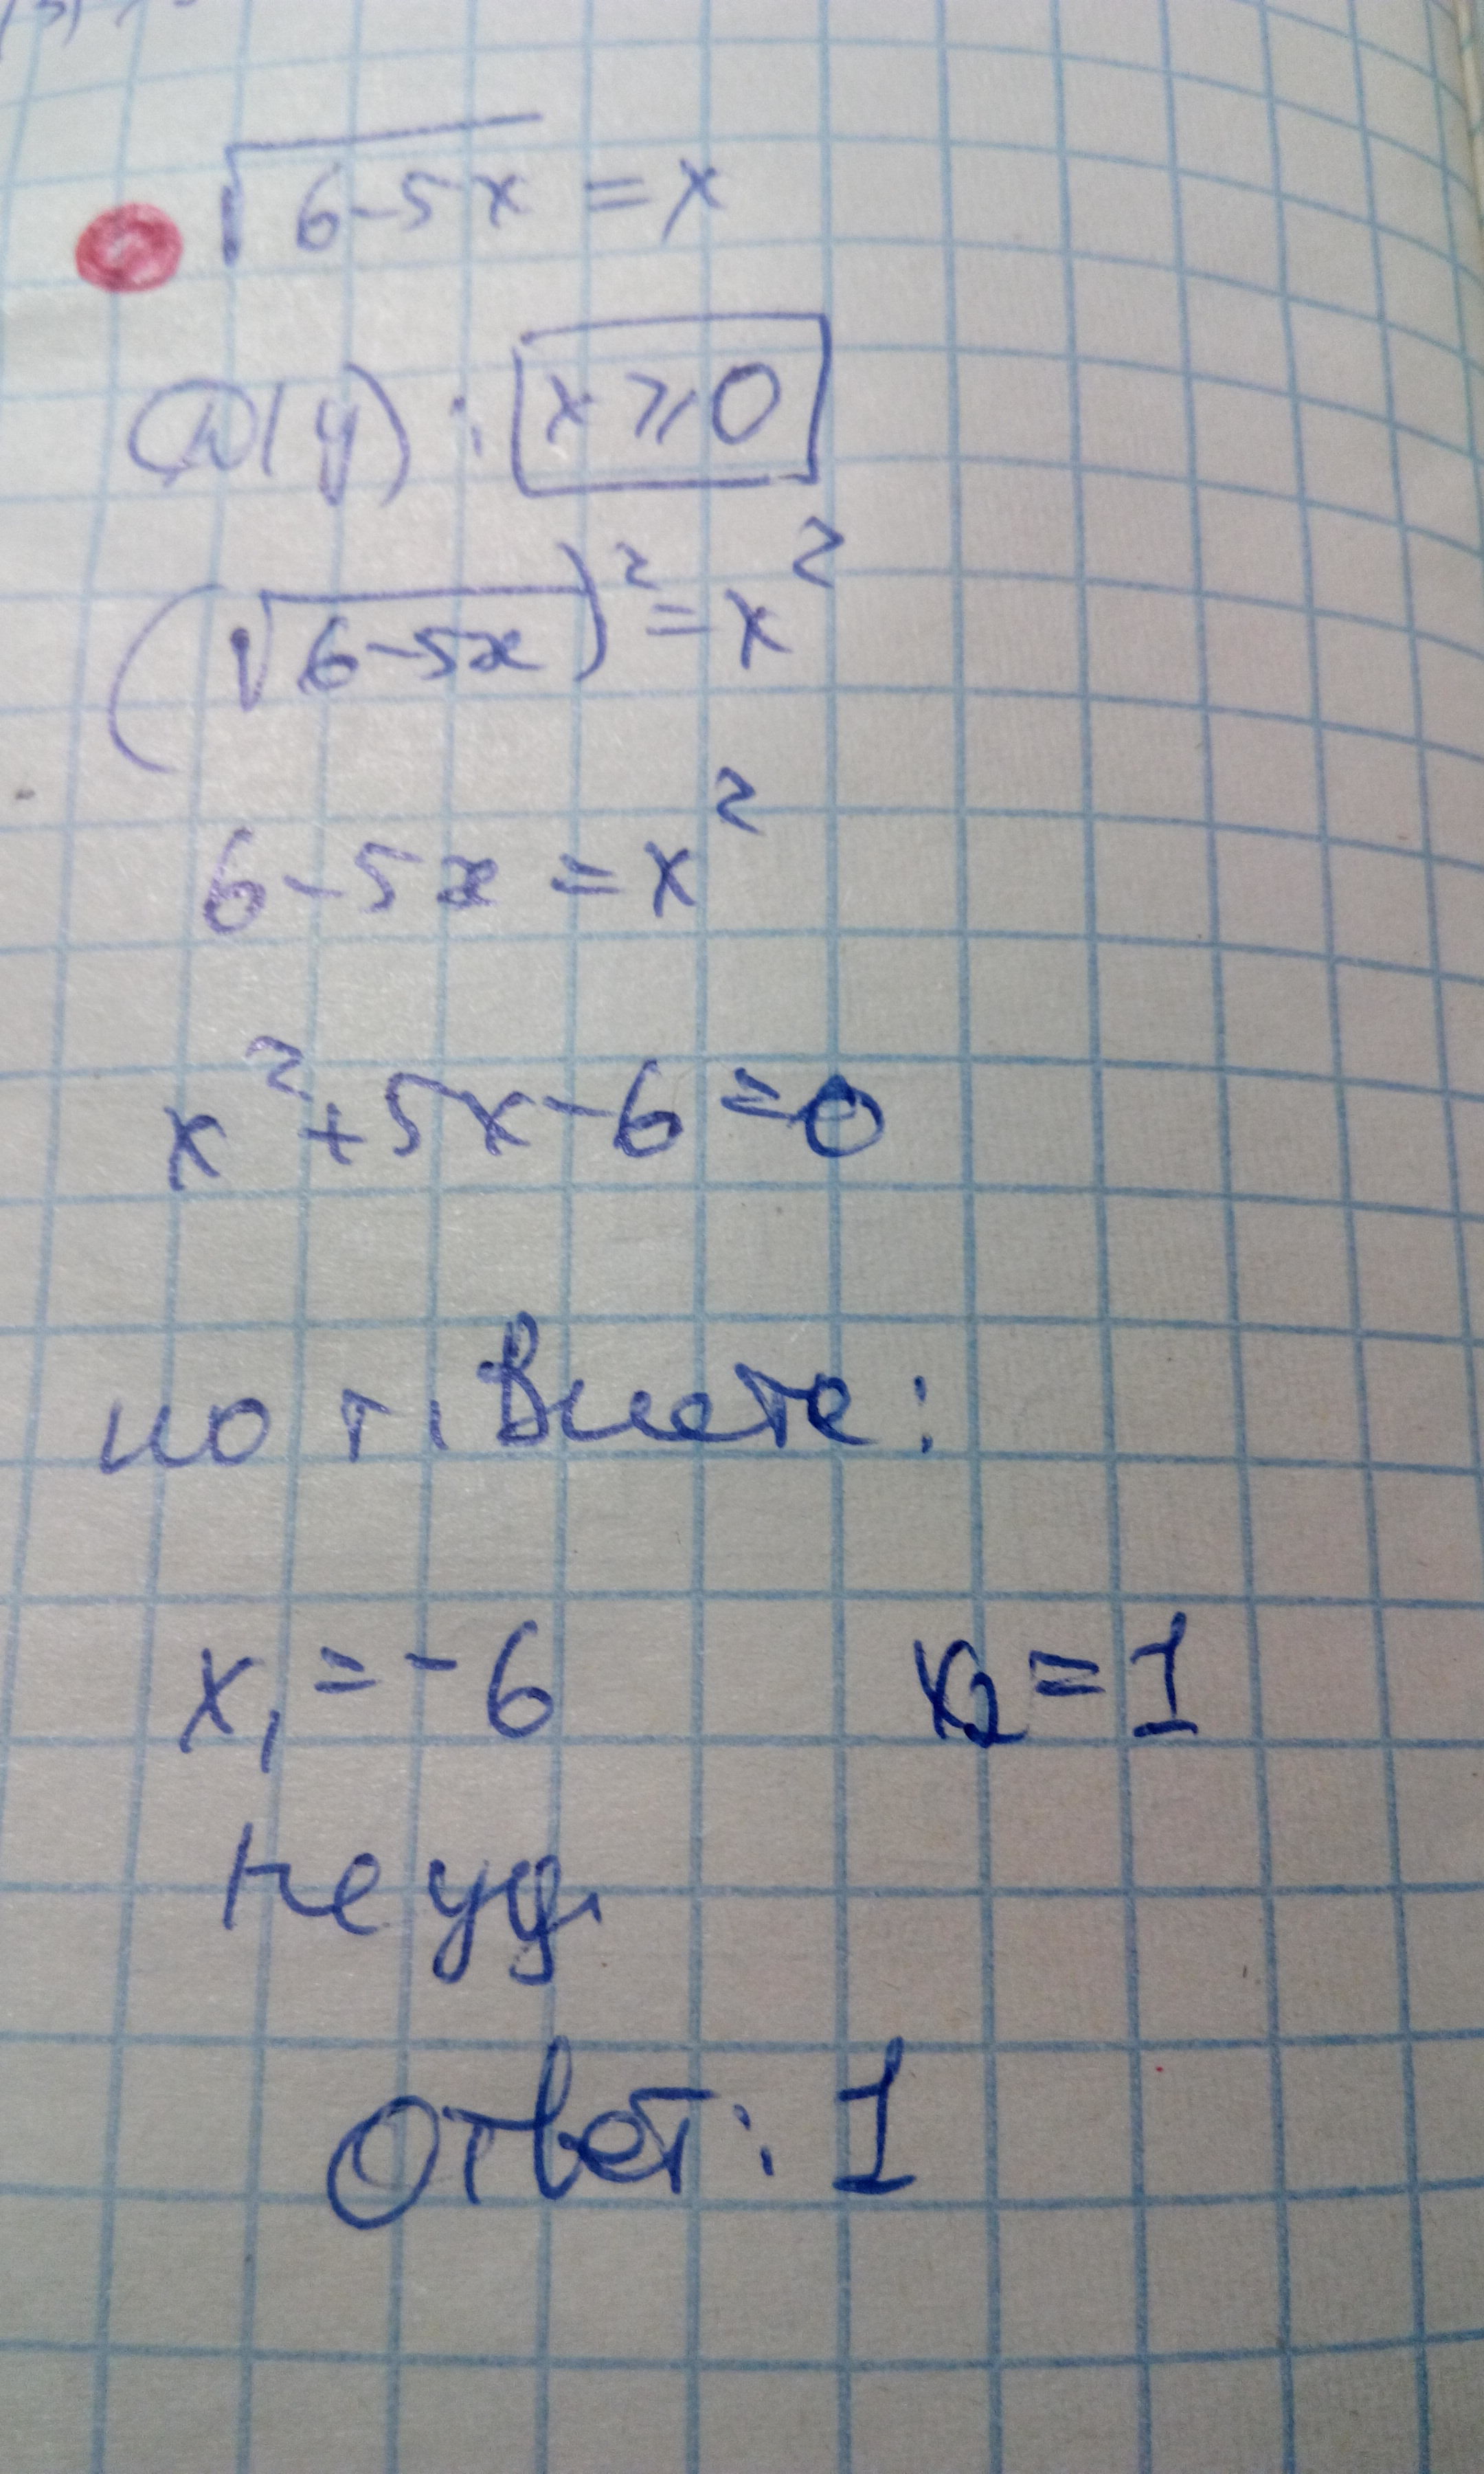 √6-5x = x
D(y): x ≥ 0
(√6-5x)² = x²
6-5x = x²
x²+5x-6=0
по т. Виета:
x₁ = -6 x₂ = 1
не уд.
Ответ: 1